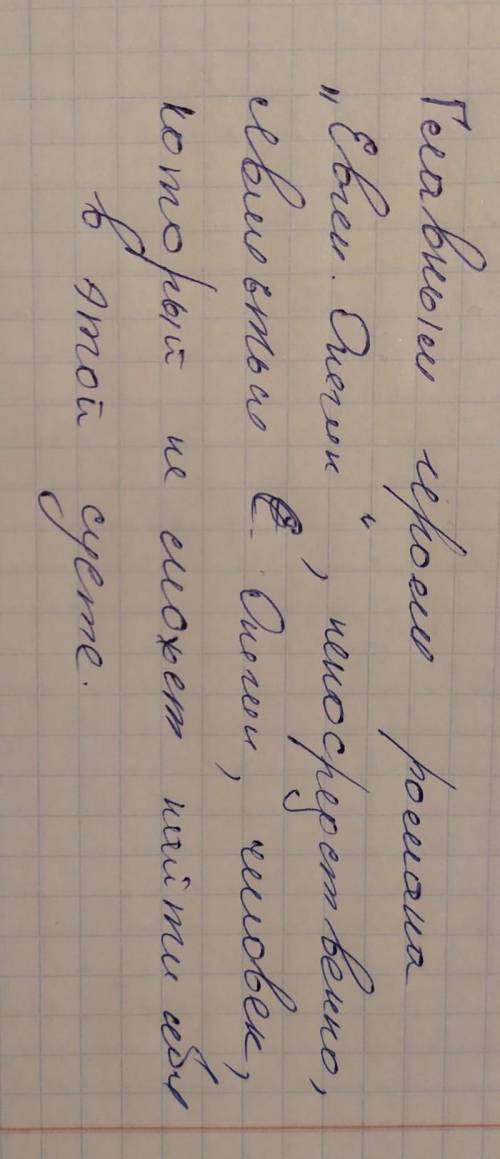 Главным героем романа
„Евген. Онегин", непосредственно,
является Е. Онегин, человек,
который не может найти себя
в этой суете.